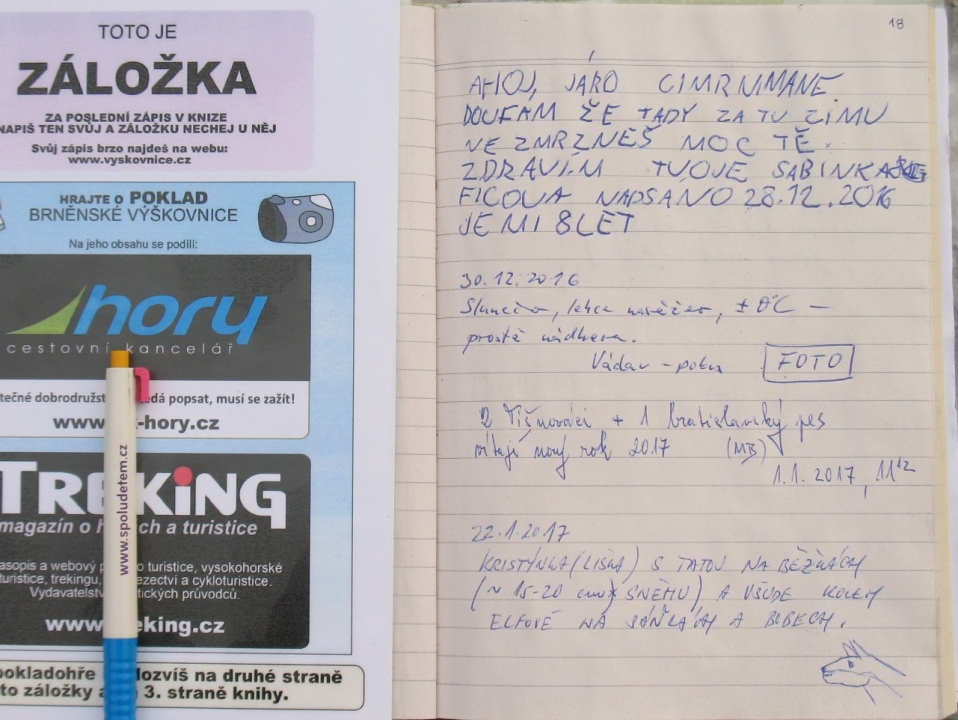 TOTO JE
ZÁLOŽKA
ZA POSLEDNÍ ZÁPIS V KNIZE
NAPIŠ TEN SVŮJ A ZÁLOŽKU NECHEJ U NĚJ
Svůj zápis brzo najdeš na webu:
www.vyskovnice.cz
HRAJTE O POKLAD
BRNĚNSKÉ VÝŠKOVNICE
Na jeho obsahu se podíli:
hory
cestovní kancelář
tečné dobrodružst edá popsat, musí se zažít!
www. -hory.cz
TREKiNG
magazín o h ch a turistice
asopis a webový o turistice, vysokohorské
turistice, trekingu, ezectví a cykloturistice.
Vydavatels tických průvodců.
www. eking.cz
pokladohře lozvíš na druhé straně
to záložky a 3. straně knihy.
www.spoludetem.cz
18
AHOJ, JÁRO CIMRNMANE
DOUFÁM ŽE TADY ZA TU ZIMU
NEZMRZNEŠ MOC TĚ.
ZDRAVÍM TVOJE SABINKA
FICOVA NAPSÁNO 28.12.2016
JE MI 8LET
30.12.2016
Slunečno, lehce navátý, ± 0°C –
prostě nádhera.
Václav FOTO
2 Tišnováci + 1 bratislavský pes
vítají nový rok 2017 (MB)
1.1.2017, 11¹²
22.1.2017
KRISTÝNKA (LIŠKA) S TATOU NA BĚŽKÁCH
(~ 15-20 cm SNĚHU) A VŠUDE KOLEM
ELFOVÉ NA SÁŇKÁCH A BOBECH.